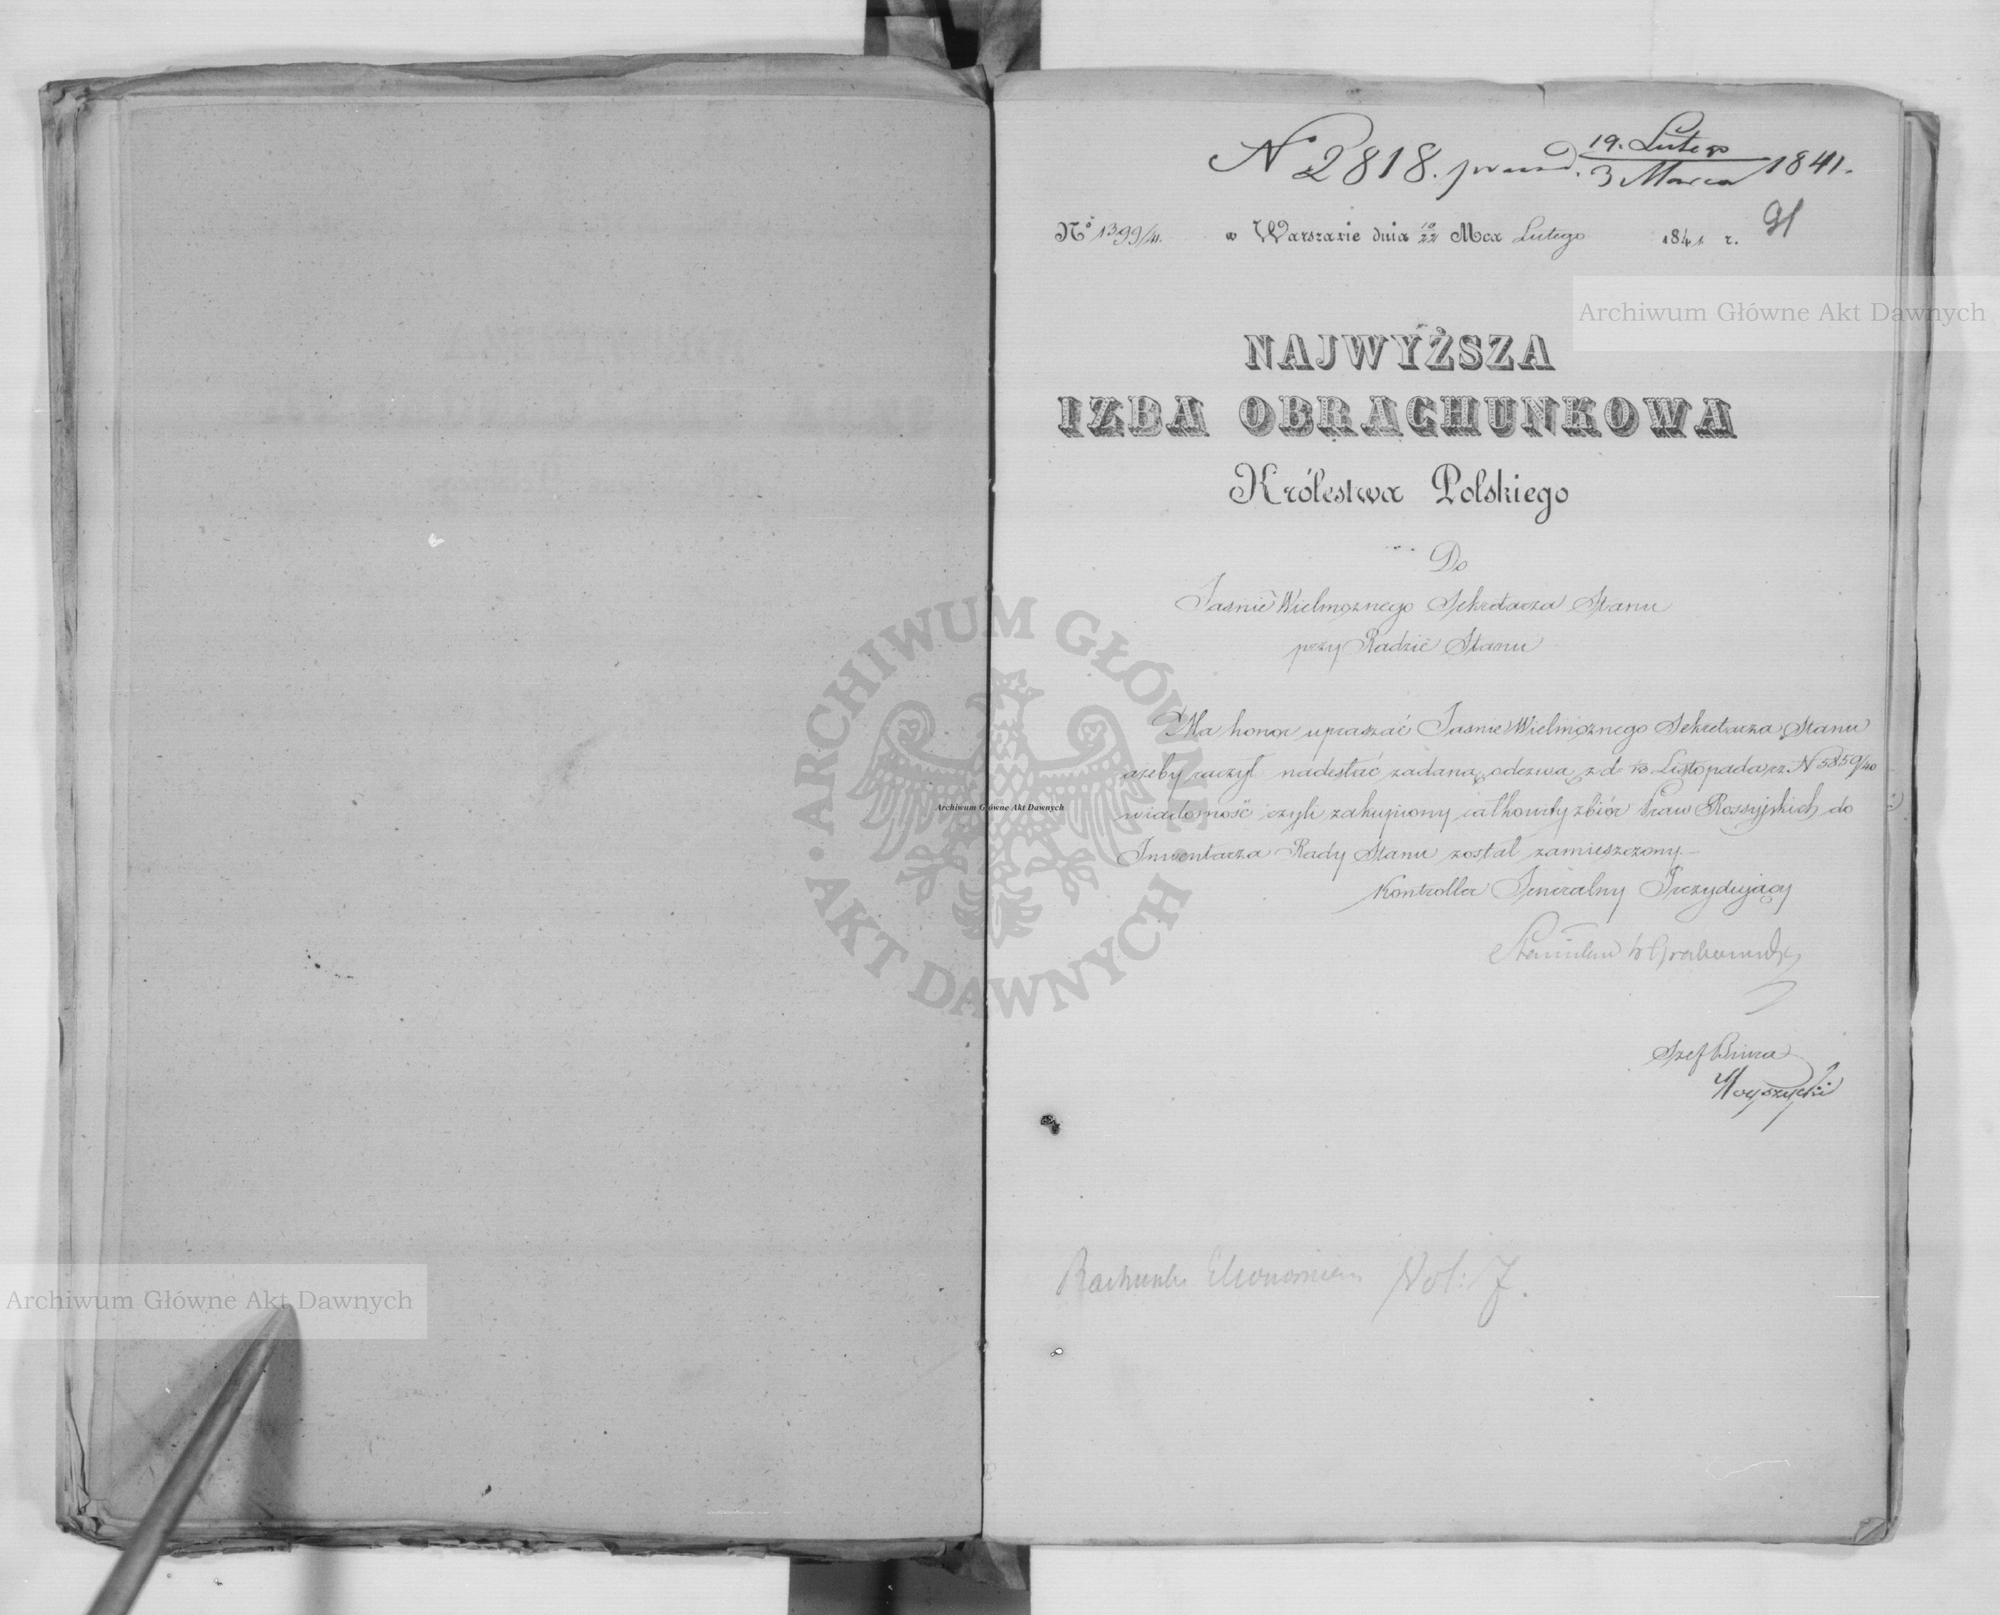 N 2818. praes. d. 19. Lutego / 3 Marca 1841.
91
No 1399/41. w Warszawie dnia 10/22 Mca Lutego 1841 r.
Archiwum Główne Akt Dawnych
NAJWYŻSZA
IZBA OBRACHUNKOWA
Królestwa Polskiego
Do
Jaśnie Wielmożnego Sekretarza Stanu
przy Radzie Stanu
Ma honor upraszać Jaśnie Wielmożnego Sekretarza Stanu
ażeby raczył nadesłać żądaną odezwą z d. Listopada r.z. N 5859/40
wiadomość czyli zakupiony całkowity zbiór Praw Rossyjskich do
Inwentarza Rady Stanu został zamieszczony.
Kontroller Jeneralny Prezydujący
Stanisław Grabowski
Szef Biura
Rachunki Ekonomiczne Vol: 7.
ARCHIWUM GŁÓWNE AKT DAWNYCH
Archiwum Główne Akt Dawnych
Archiwum Główne Akt Dawnych